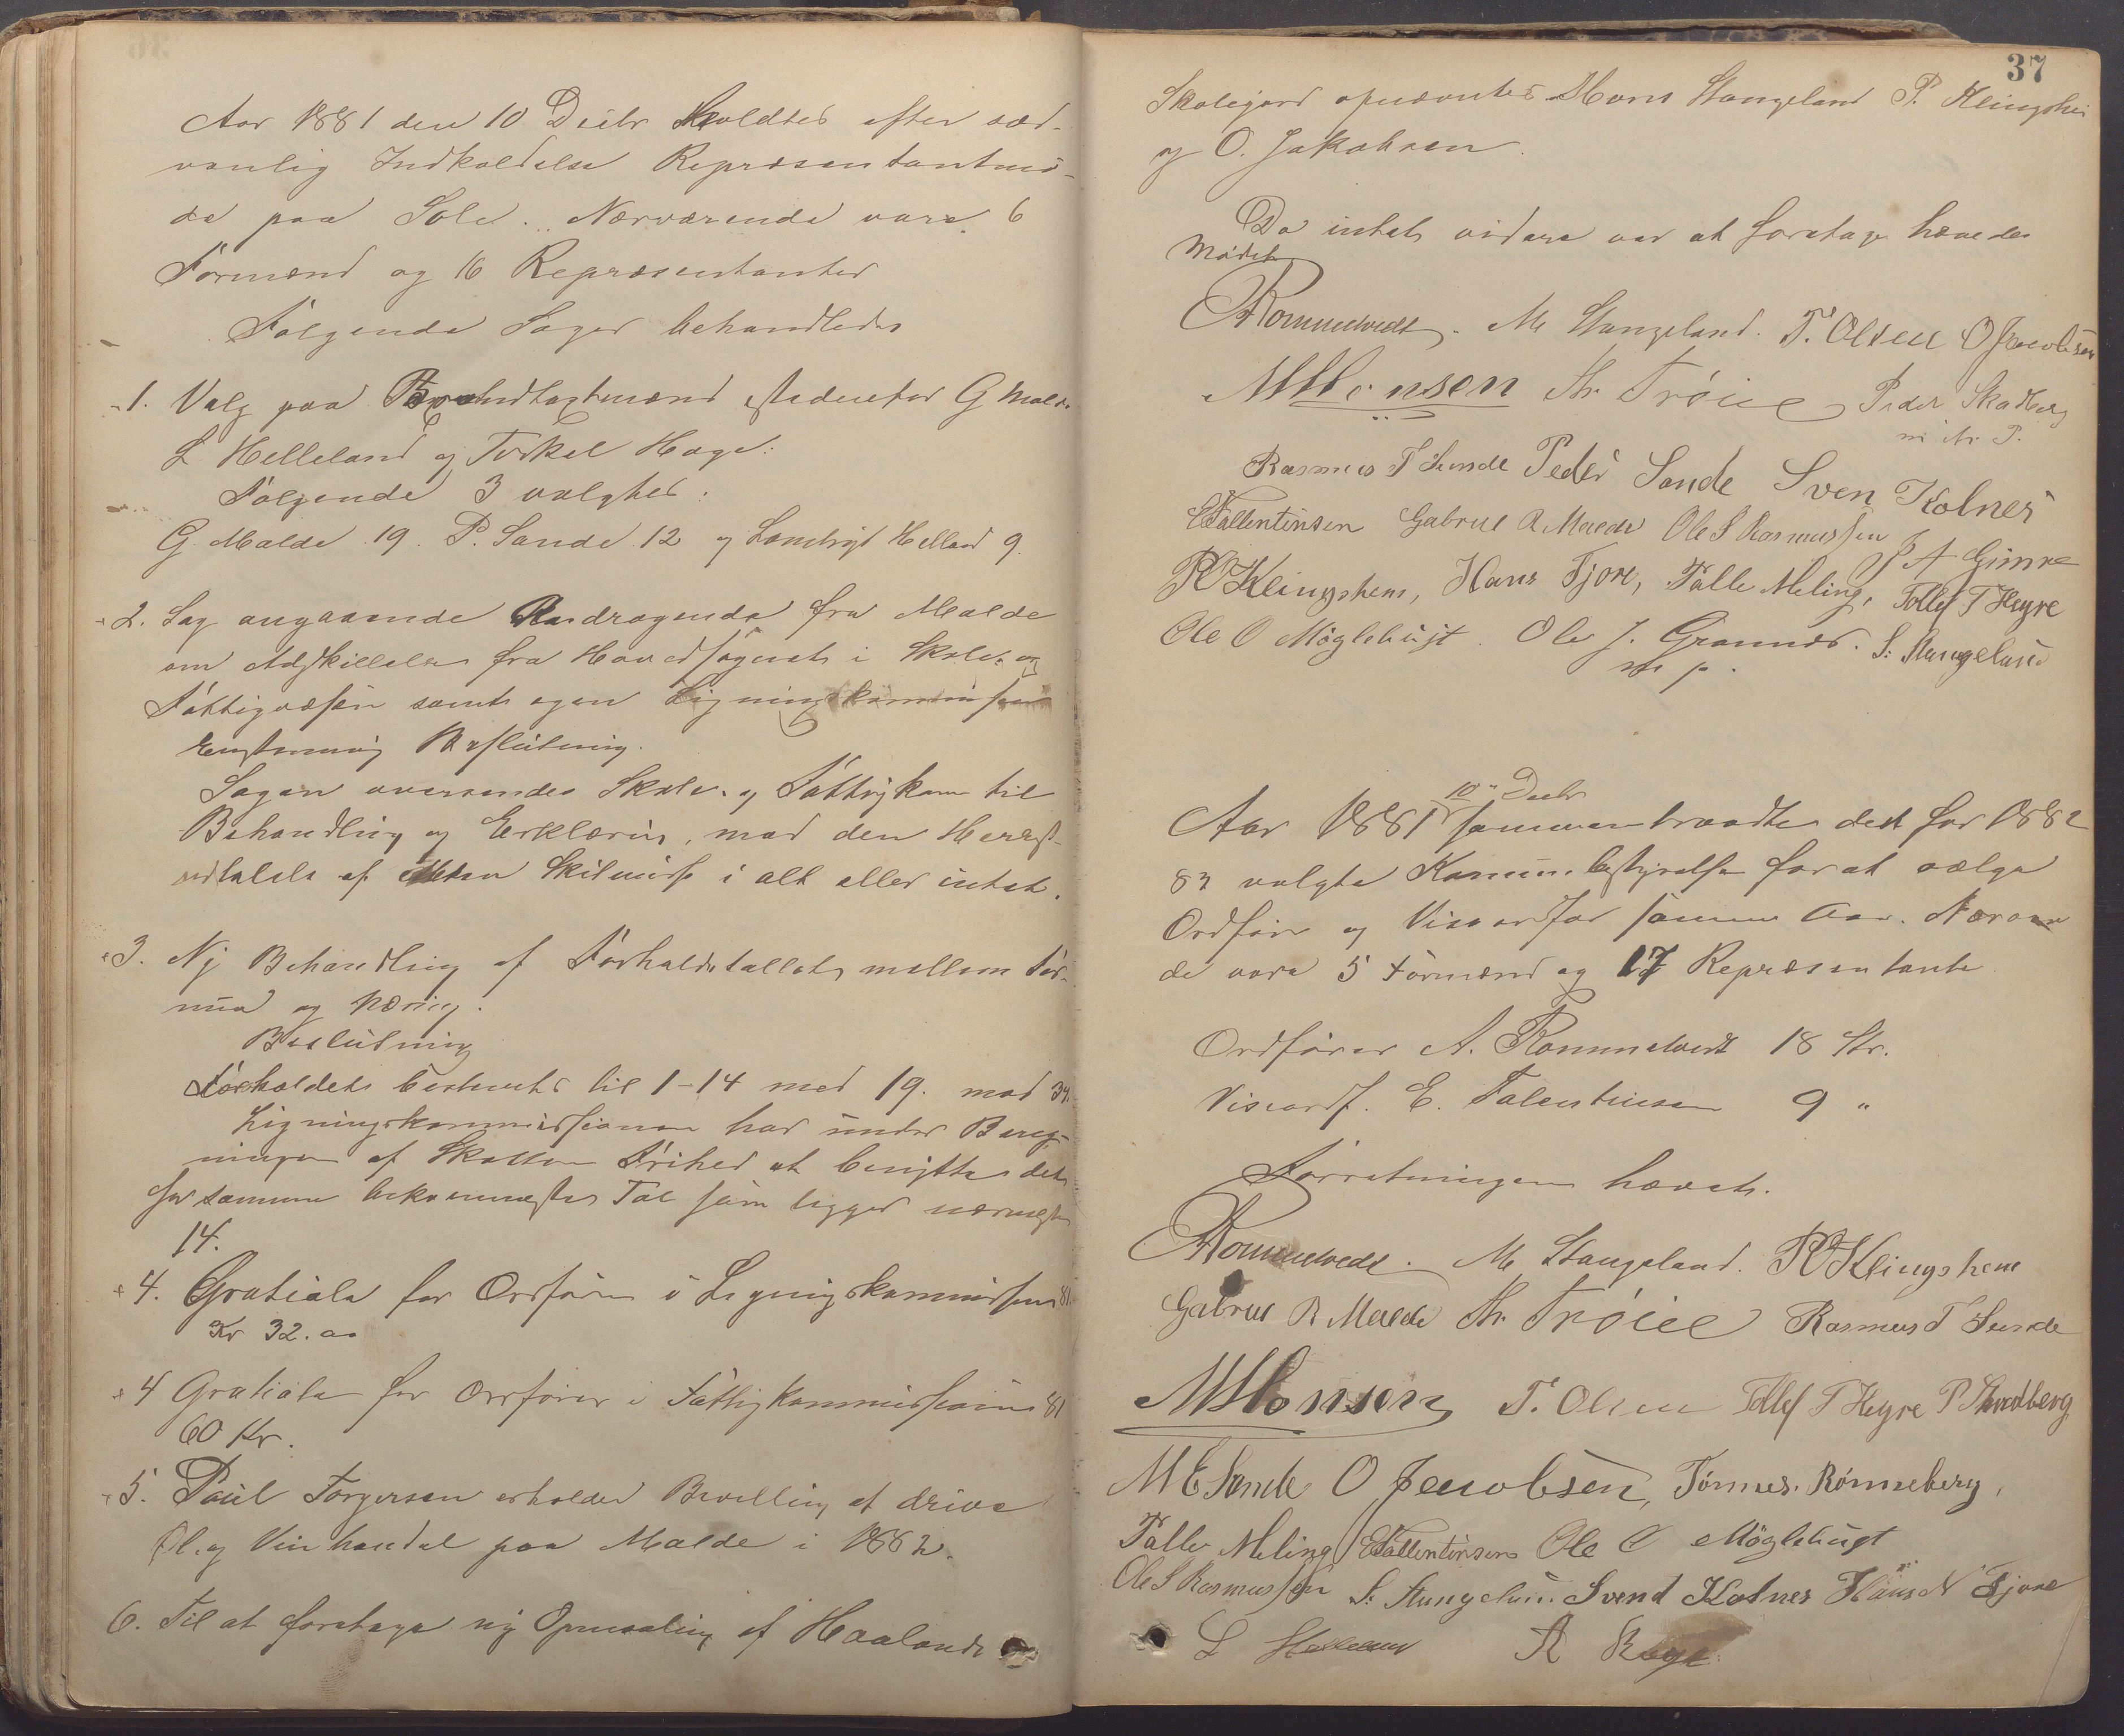 Aar 1881 den 10 Decbr holdtes efter sæd-
vanlig Indkaldelse Repræsentantmö-
de paa Sole. Nærværende vare 6
Formænd og 16 Repræsentanter
Følgende Sager behandledes
1. Valg paa Brandtagtmænd istedenfor G Malde
L Helleland og Torkel Hage.
Følgende 3 valgtes:
G. Malde 19. P. Sande 12 og Lendrigt Helland 9.
2. Sag angaaende Andragende fra Malde
om Adskillelse fra Hovedsognet i Skole- og
Fattigvæsen samt egen Ligningskommission
Enstemmig Beslutning.
Sagen oversendes Skole- og Fattigkom til
Behandling og Erklæring, med den Herreds-
udtalelse af Skilsmisse i alt eller intet.
3. Ny Behandling af Forholdstallet mellem For-
mue og Næring.
Beslutning
Forholdet bestemtes til 1-14 med 19. mod 3.
Ligningskommissionen har under Bereg-
ningen af Skatten Frihed at benytte det
for samme bekvemmeste Tal som ligger nærmest
14.
4. Gratiale for Ordfører i Ligningskommissionen 81.
Kr 32.00
4 Gratiale for Ordfører i Fattigkommissionen 81
60 Kr.
5. Paul Torgersen erholder Bevilling at drive
Øl- og Vinhandel paa Malde i 1882.
6. Til at foretage ny Opmaaling af Haalands
37
Skolejord opnævntes Mons Stangeland P. Klingshei
og O. Jakobsen.
Da intet videre var at foretage hævedes
Mødet
A Rommetvedt. M Stangeland. T. Olsen O Jacobsen
M Monsen Th. Trøiee Peder Skadberg
m. p.
Rasmus T Sunde Peder Sande Sven Kolnes
E Fallentinsen Gabriel R Malde Ole S Rasmussen
J A Gimre
R Klingshem, Hans Fjore, Talle Meling, Tollef T Høyre
Ole O Møglebust. Ole J. Grannes. S. Stangeland
m p.
10 Decbr
Aar 1881 sammentraadte det for 1882
83 valgte Kommunebestyrelse for at vælge
Ordfører og Viseordfør samme Aar. Nærværen
de vare 5 Formænd og 17 Repræsentante
Ordfører A. Rommetvedt 18 St.
Viseordf. E. Falentinsen 9 "
Forretningen hævet.
A Rommetvedt. M Stangeland. R Klingshem
Gabriel R Malde Th. Trøiee Rasmus T Sunde
M Monsen T. Olsen Tollef T Høyre P Skadberg
M E Sande O Jacobsen, Tønnes Rønneberg,
Talle Meling E Fallentinsen Ole O Møglebust
Ole S Rasmussen S. Stangeland Svend Kolnes Hans N Fjore
L Helland A Rege